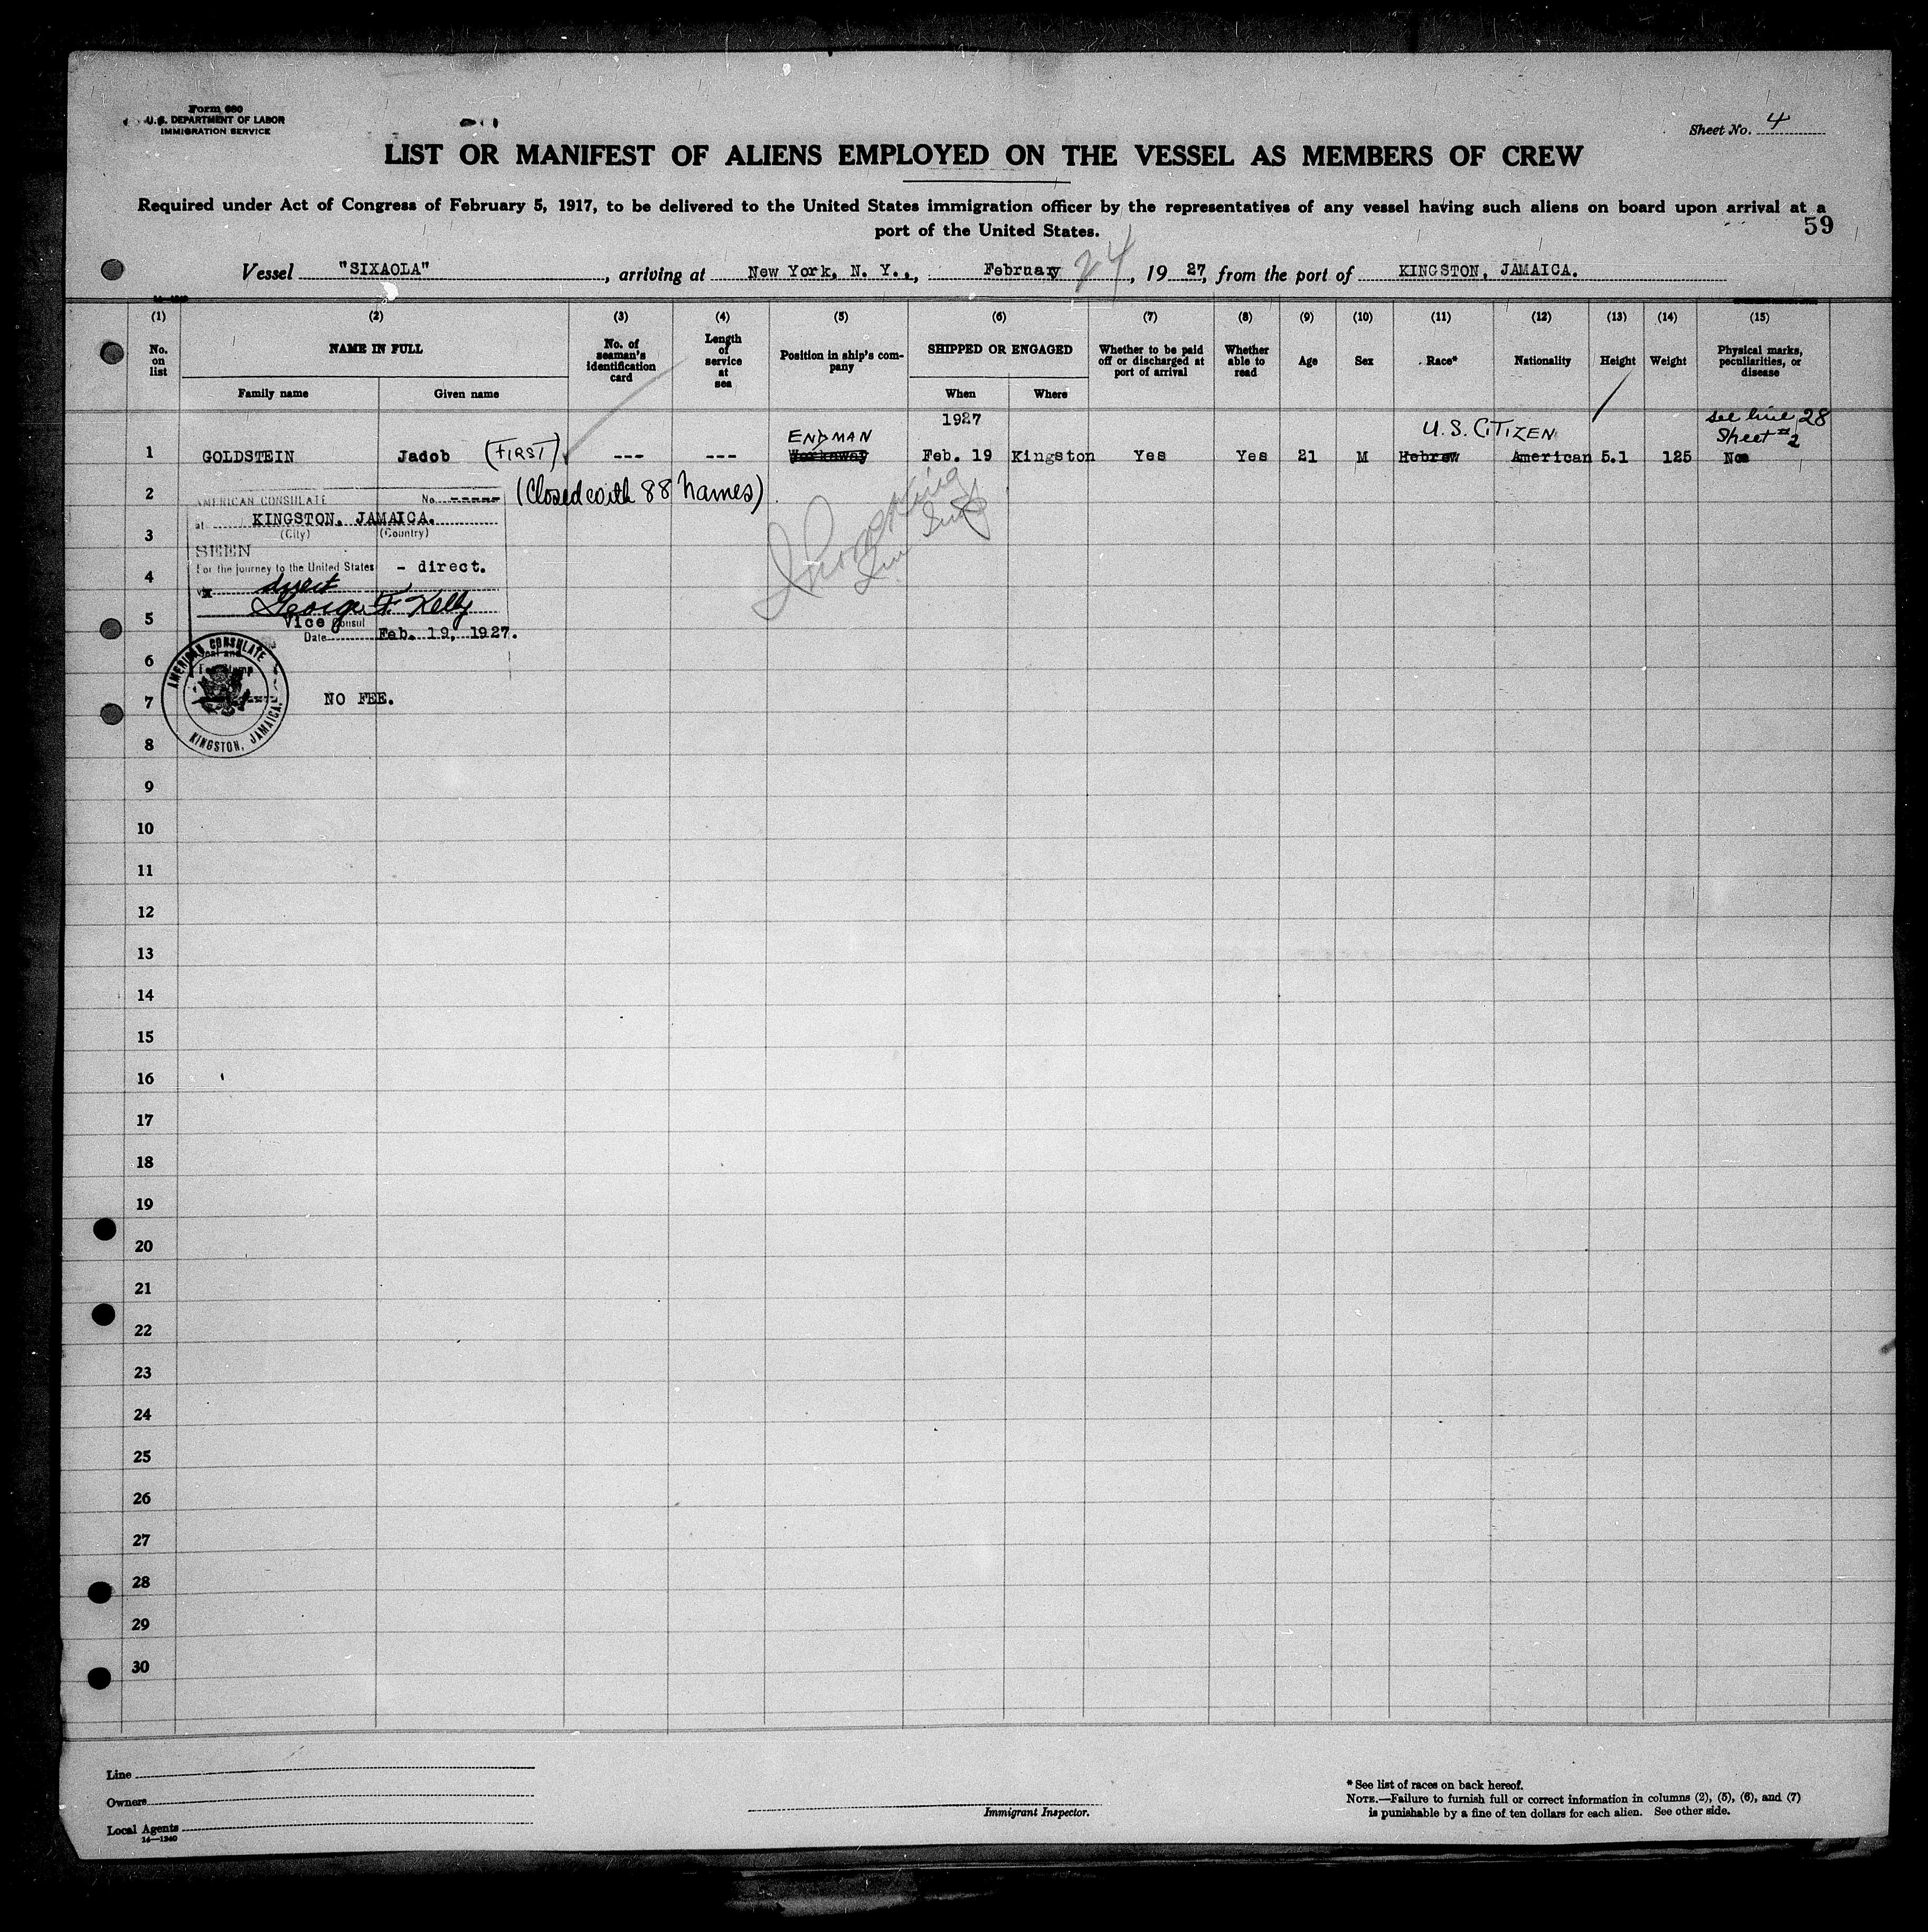 Form 680
U.S. DEPARTMENT OF LABOR
IMMIGRATION SERVICE
Sheet No. 4
LIST OR MANIFEST OF ALIENS EMPLOYED ON THE VESSEL AS MEMBERS OF CREW
Required under Act of Congress of February 5, 1917, to be delivered to the United States immigration officer by the representatives of any vessel having such aliens on board upon arrival at a
port of the United States.
59
Vessel "SIXAOLA", arriving at New York, N. Y., February 24, 1927, from the port of KINGSTON, JAMAICA.
(1) (2) (3) (4) (5) (6) (7) (8) (9) (10) (11) (12) (13) (14) (15)
No. on list
NAME IN FULL
Family name
Given name
No. of seaman's identification card
Length of service at sea
Position in ship's company
SHIPPED OR ENGAGED
When
Where
Whether to be paid off or discharged at port of arrival
Whether able to read
Age
Sex
Race*
Nationality
Height
Weight
Physical marks, peculiarities, or disease
1927
see line 28
ENDMAN
U.S. CITIZEN
Sheet #2
1 GOLDSTEIN Jadob (FIRST) --- --- Workaway Feb. 19 Kingston Yes Yes 21 M Hebrew American 5.1 125 No
2
(Closed with 88 Names)
AMERICAN CONSULATE No. -----
at KINGSTON, JAMAICA.
(City) (Country)
3
SEEN
For the journey to the United States - direct.
4
via direct
George F. Kelly
5
Vice Consul
Date Feb. 19, 1927.
6
AMERICAN CONSULATE
KINGSTON, JAMAICA.
7
NO FEE.
8
9
10
11
12
13
14
15
16
17
18
19
20
21
22
23
24
25
26
27
28
29
30
Line
Owners
Local Agents
14—1240
Immigrant Inspector.
* See list of races on back hereof.
NOTE.—Failure to furnish full or correct information in columns (2), (5), (6), and (7)
is punishable by a fine of ten dollars for each alien. See other side.